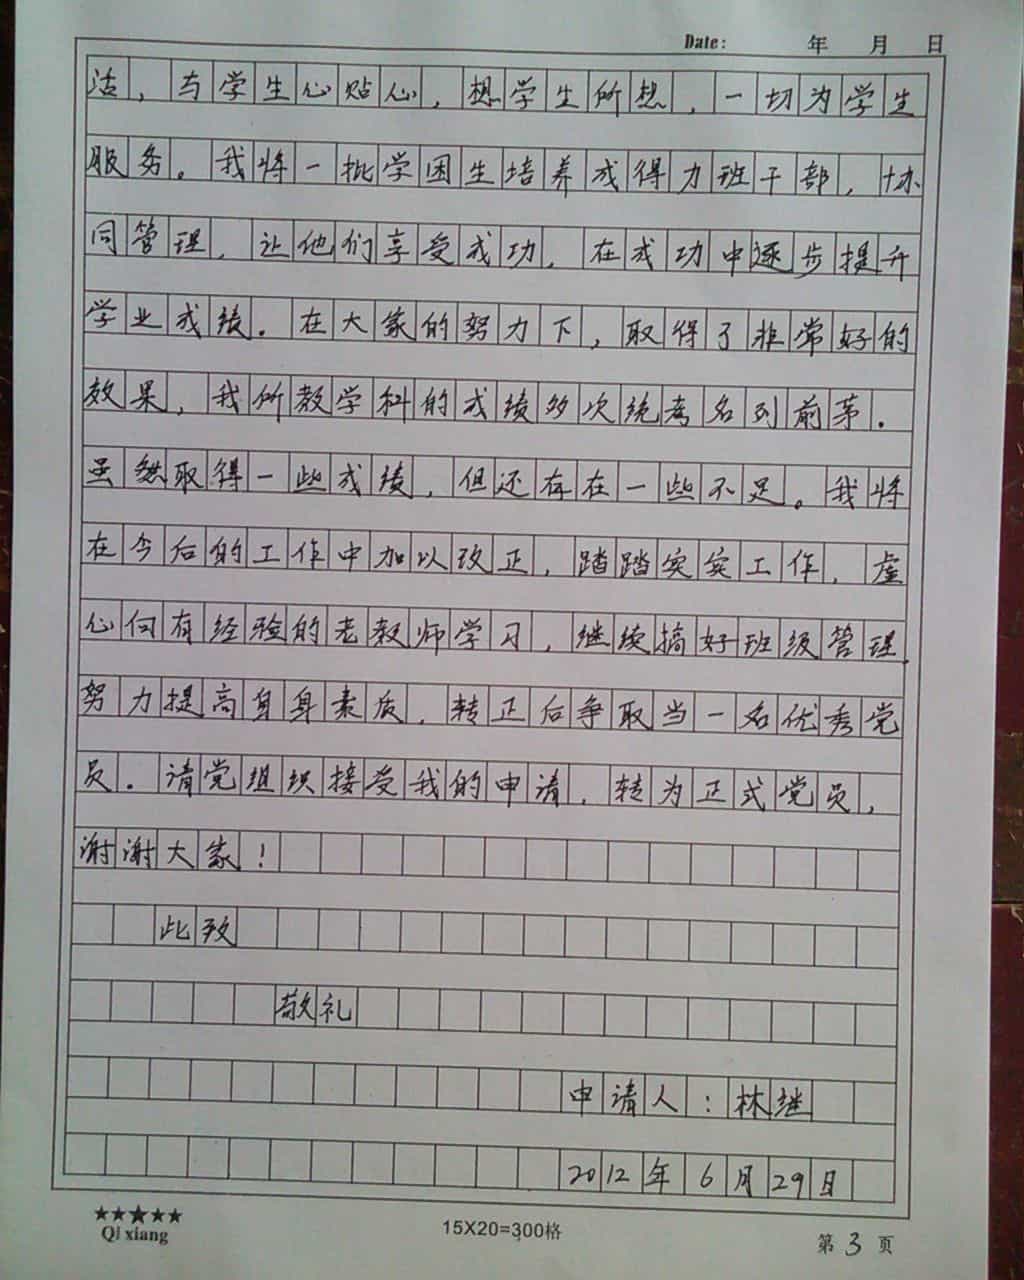 Date: 年 月 日
活，与学生心贴心，想学生所想，一切为学生
服务。我将一批学困生培养成得力班干部，协
同管理，让他们享受成功，在成功中逐步提升
学业成绩。在大家的努力下，取得了非常好的
效果，我所教学科的成绩多次统考名列前茅.
虽然取得一些成绩，但还存在一些不足。我将
在今后的工作中加以改正，踏踏实实工作，虚
心向有经验的老教师学习，继续搞好班级管理，
努力提高自身素质，转正后争取当一名优秀党
员。请党组织接受我的申请，转为正式党员，
谢谢大家！
此致
敬礼
申请人：林继
2012年6月29日
★★★★★
Qi xiang
15X20=300格
第 3 页